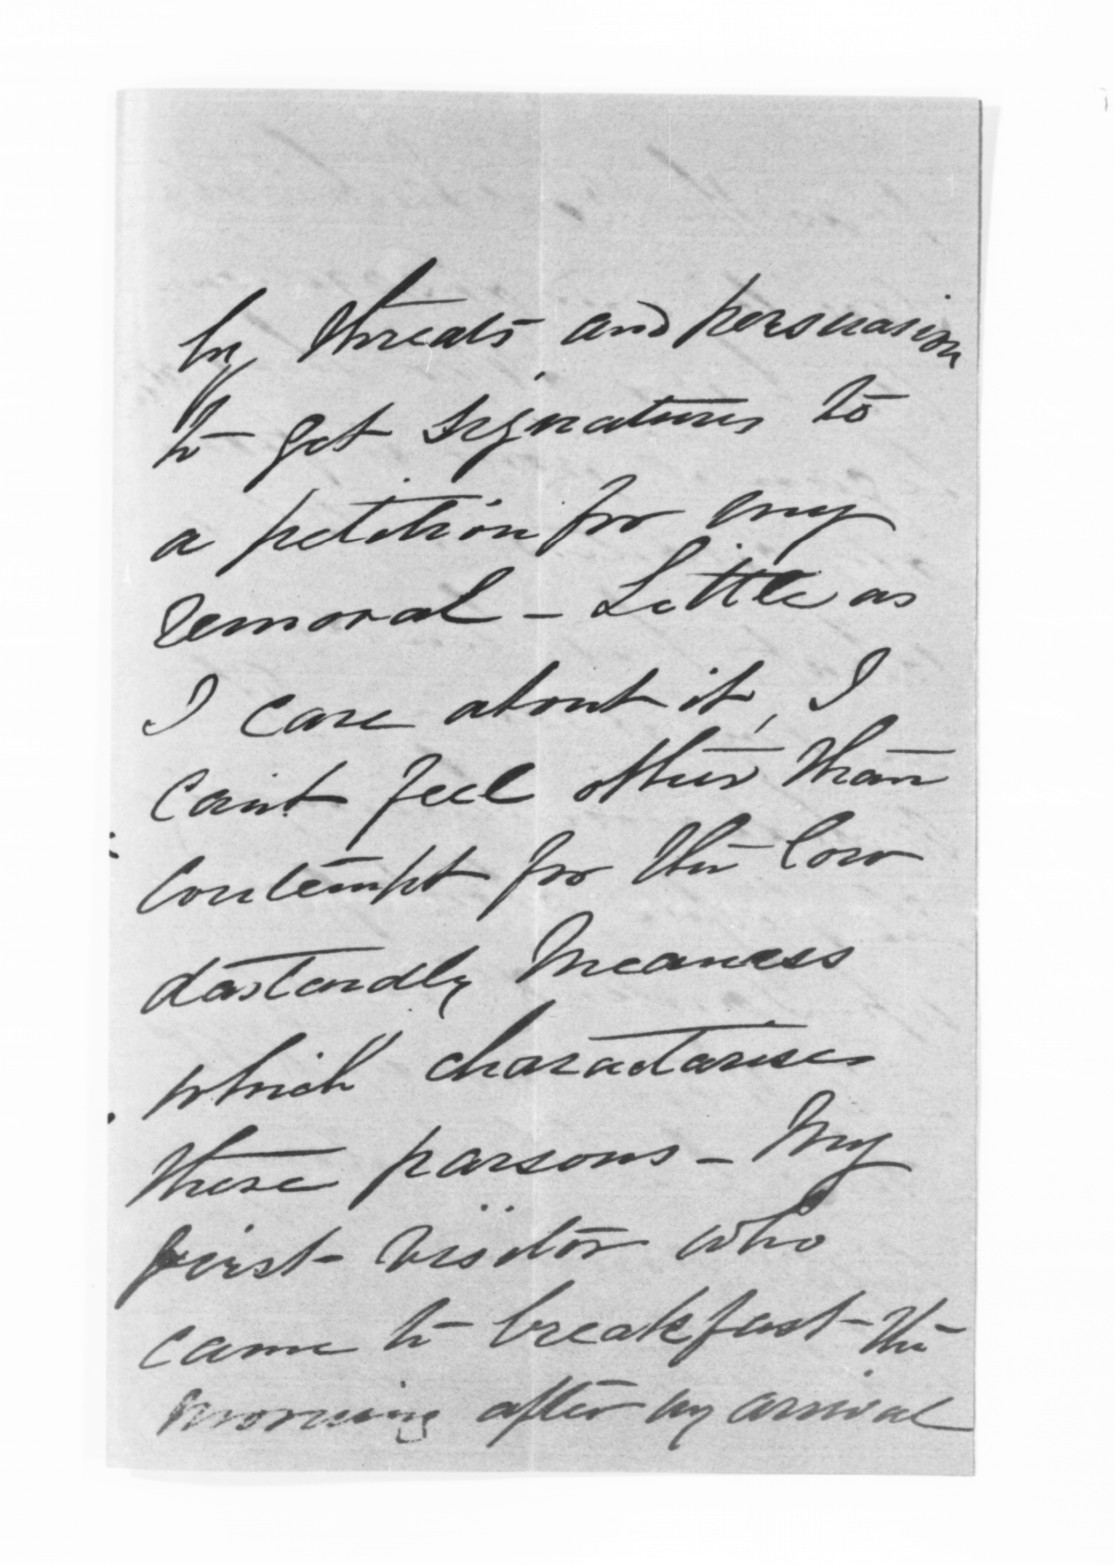 by threats and persuasion
to get signatures to
a petition for my
removal - Little as
I care about it, I
can't feel other than
contempt for the low
dastardly meaness
which charactarises
these parsons - My
first visitor who
came to breakfast the
morning after my arrival